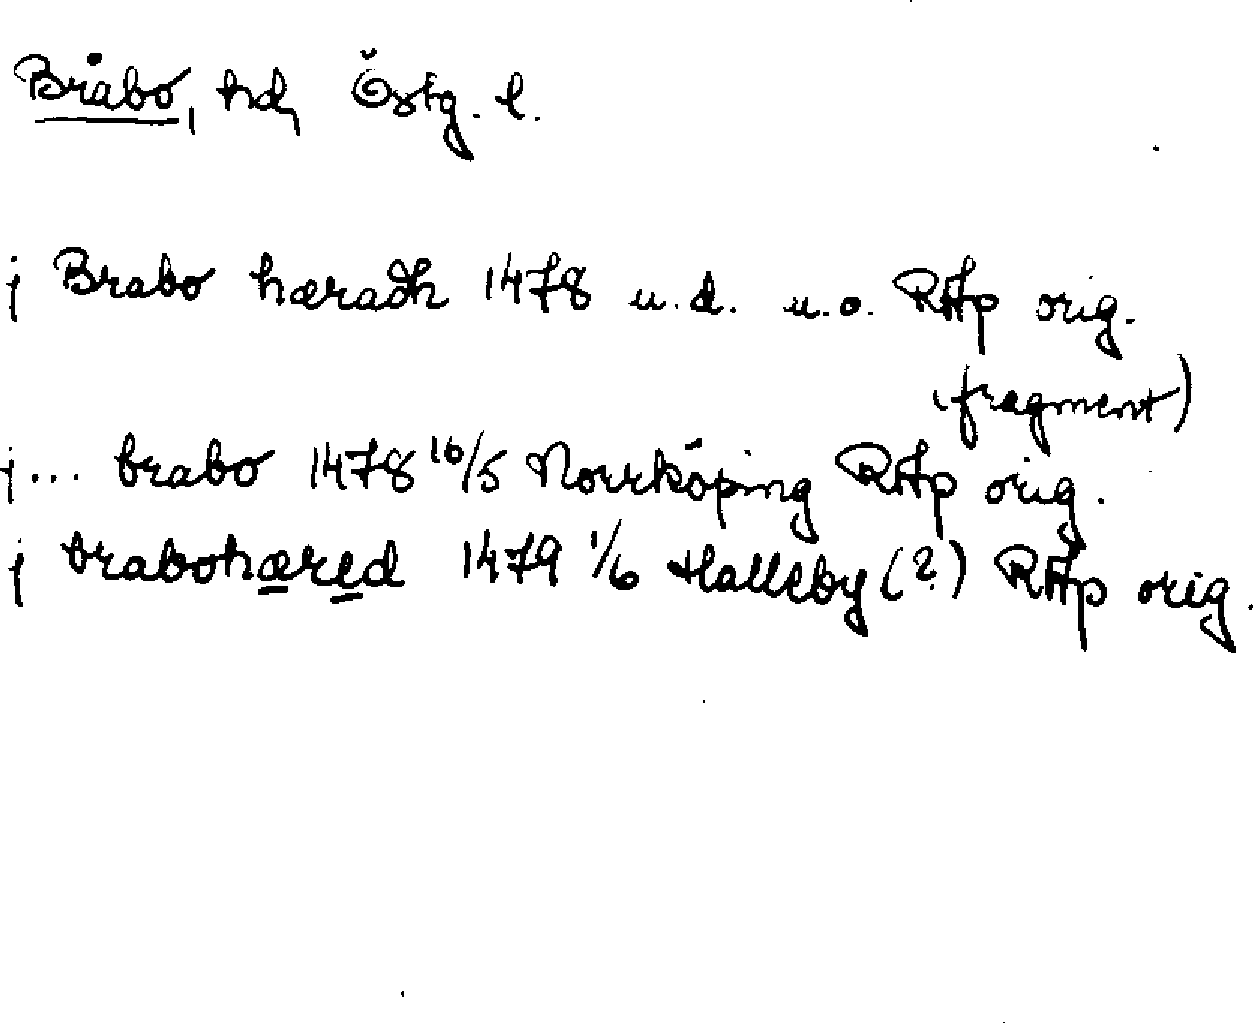 Bråbo, hd, Östg. l.
j Brabo hæradh 1478 u.d. u.o. RAp orig.
(fragment)
j... brabo 1478 16/5 Norrköping RAp orig.
j brabohæred 1479 1/6 Halleby (?) RAp orig.